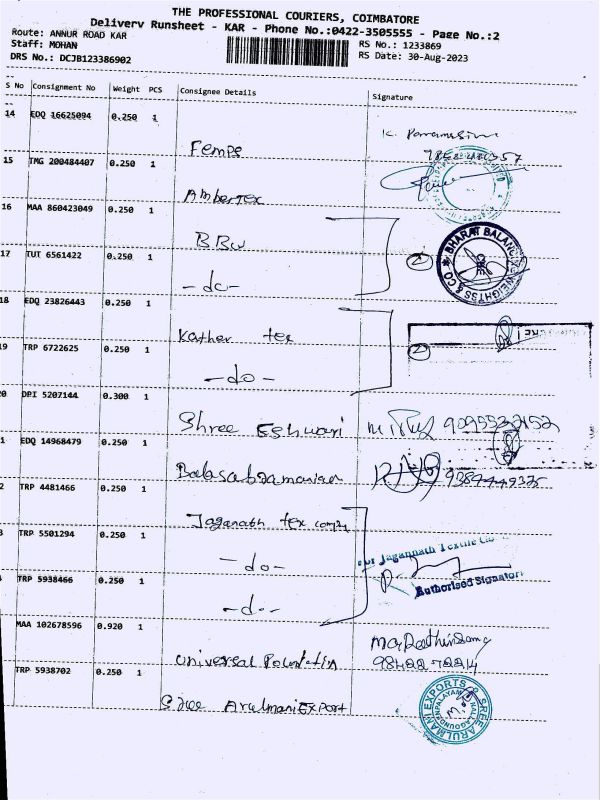 THE PROFESSIONAL COURIERS, COIMBATORE
Delivery Runsheet - KAR - Phone No.:0422-3505555 - Page No.:2
Route: ANNUR ROAD KAR
RS No.: 1233869
Staff: MOHAN
RS Date: 30-Aug-2023
DRS No.: DCJB123386902
S No Consignment No Weight PCS Consignee Details Signature
14 EDQ 16625094 0.250 1
Femps
15 TMG 200484407 0.250 1
Ambertex
16 MAA 860423049 0.250 1
BBW
BHARAT BALANCE WEIGHTSS & CO
17 TUT 6561422 0.250 1
2
-do-
18 EDQ 23826443 0.250 1
Kather tex
19 TRP 6722625 0.250 1
2
-do-
0 DPI 5207144 0.300 1
Shree Eshwari
1 EDQ 14968479 0.250 1
Balasabramanian 9384449325
2 TRP 4481466 0.250 1
Jaganath tex
3 TRP 5501294 0.250 1
For Jagannath Textile Co
-do-
TRP 5938466 0.250 1
Authorised Signatory
-do-
MAA 102678596 0.920 1
Universal
TRP 5938702 0.250 1
Sree Arulmani Export
SREE ARULMANI EXPORTS